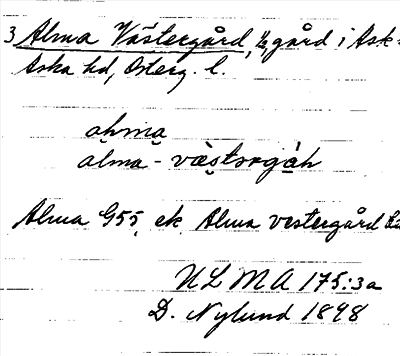 3 Alma Västergård, ½ gård i Ask
Aska hd, Österg. l.
ahma
alma - västərgåh
Alma G55, ek. Alma vestergård
ULMA 175:3a
D. Nylund 1898